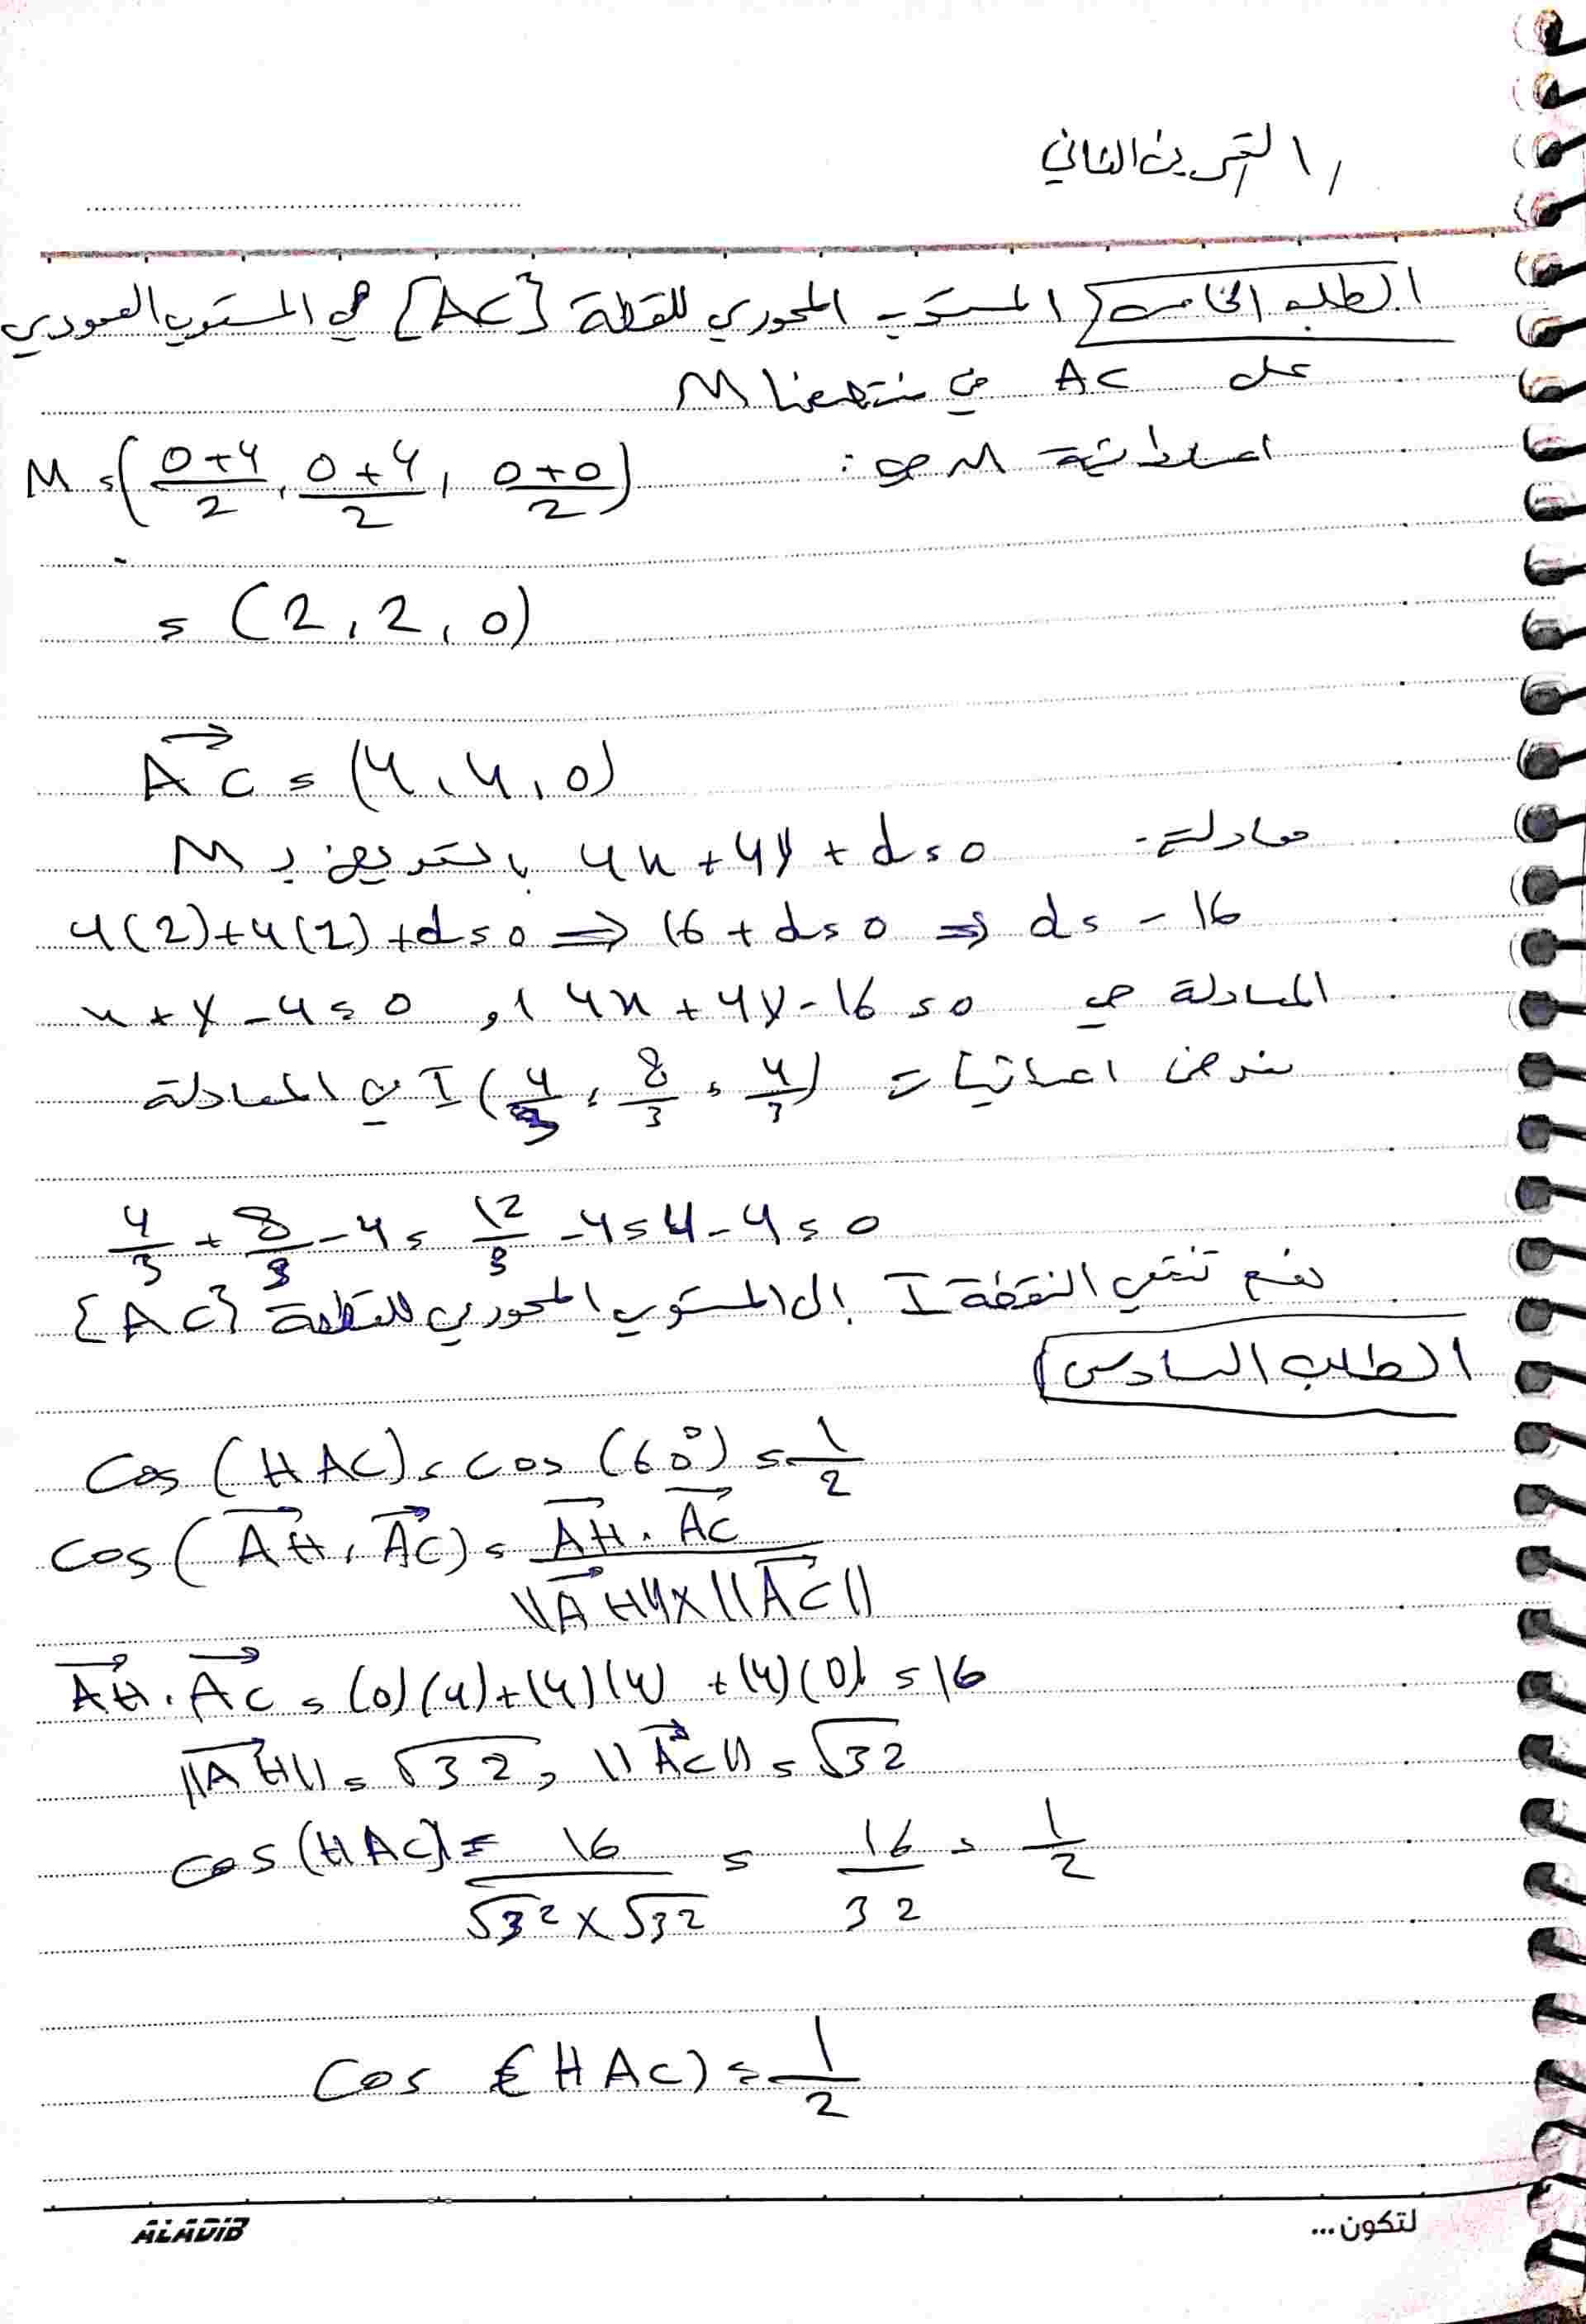 التمرين الثاني
الطلب الخامس المستوي المحوري للقطعة [AC] هي المستوي العمودي
على AC في منتصفها M
احداثية M هي:
M = (0+4/2, 0+4/2, 0+0/2)
= (2, 2, 0)
AC = (4, 4, 0)
معادلته: 4x + 4y + d = 0 بالتعويض بـ M
4(2)+4(2)+d=0 ⇒ 16+d=0 ⇒ d = -16
المعادلة هي 4x + 4y - 16 = 0 او x + y - 4 = 0
نعوض احداثيات I (4/3, 8/3, 4/3) في المعادلة
4/3 + 8/3 - 4 = 12/3 - 4 = 4 - 4 = 0
نعم تنتمي النقطة I إلى المستوي المحوري للقطعة [AC]
الطلب السادس
Cos (HAC) = cos (60°) = 1/2
cos (AH, AC) = AH . AC / ||AH|| × ||AC||
AH . AC = (0)(4)+(4)(4) + (4)(0) = 16
||AH|| = √32, ||AC|| = √32
cos (HAC) = 16 / √32 × √32 = 16/32 = 1/2
Cos (HAC) = 1/2
ALADIB
لتكون...